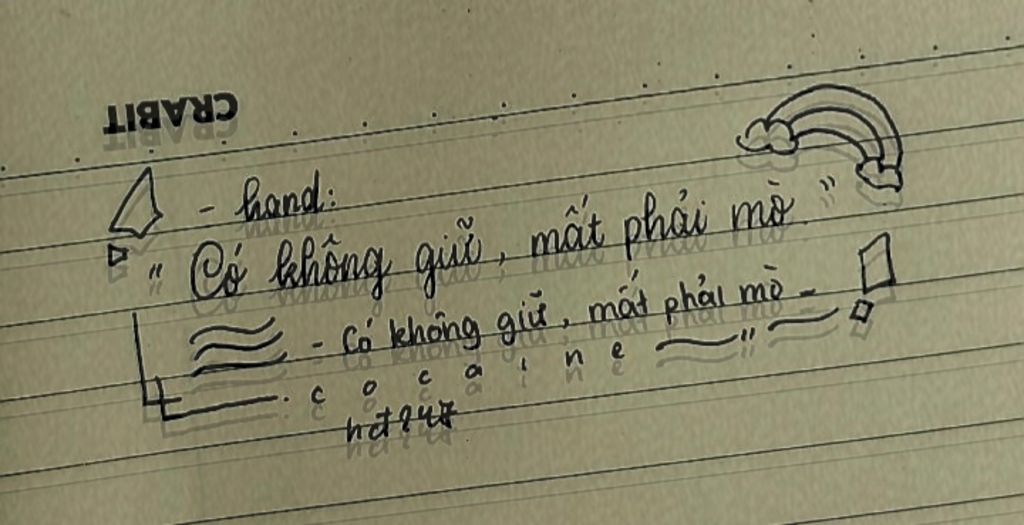 CRABIT
- hand:
" Có không giữ, mất phải mò "
- Có không giữ, mất phải mò -
. c o c a i n e "